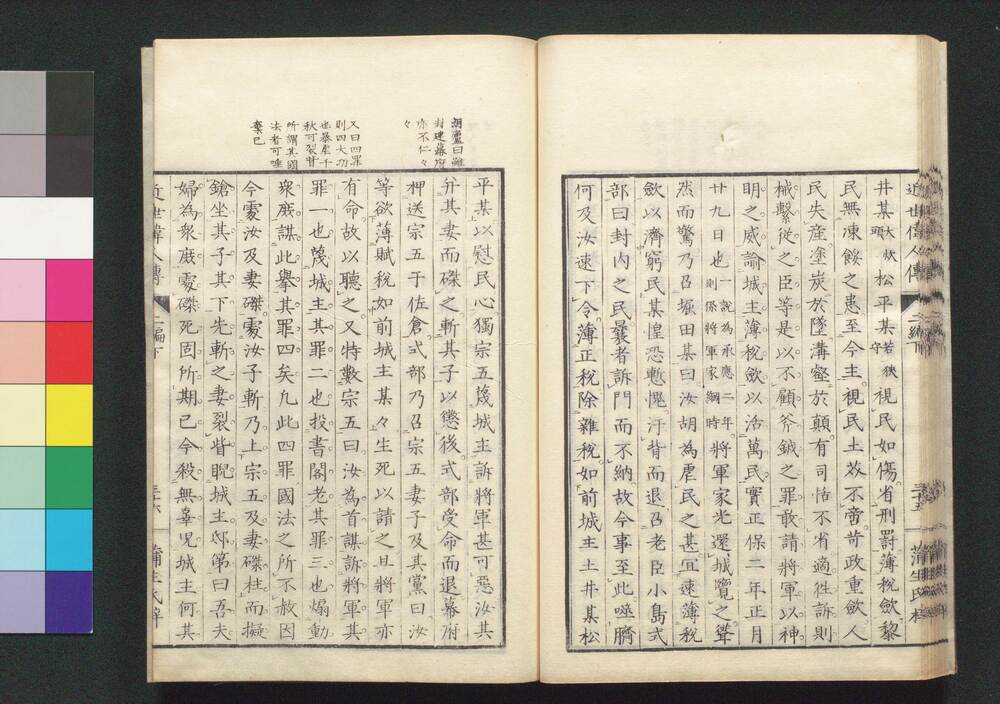 近世偉人傳
井某大炊頭松平某若狹守視民如傷省刑罰薄稅斂黎
民無凍餒之患至今主視民土芥不啻苛政重斂人
民失產塗炭於墜溝壑於顛有司恬不省適往訴則
械繫從之臣等是以不顧斧鉞之罪敢請將軍以神
明之威諭城主薄稅斂以活萬民實正保二年正月
廿九日也一說為承應二年則係將軍家綱時將軍家光還城覽之聳
然而驚乃召堀田某曰汝胡為虐民之甚宜速薄稅
斂以濟窮民某惶恐慙愧汗背而退召老臣小島式
部曰封内之民曩者訴門而不納故今事至此噬臍
何及汝速下令薄正稅除雜稅如前城主土井某松
平某以慰民心獨宗五蔑城主訴將軍甚可惡汝其
并其妻而磔之斬其子以懲後式部受命而退幕府
押送宗五于佐倉式部乃召宗五妻子及其黨曰汝
等欲薄賦稅如前城主某々生死以請之且將軍亦
有命故以聽之又特數宗五曰汝為首謀訴將軍其
罪一也蔑城主其罪二也投書閣老其罪三也煽動
衆庶謀此舉其罪四矣凡此四罪國法之所不赦因
今處汝及妻磔處汝子斬乃上宗五及妻磔柱而擬
鎗坐其子其下先斬之妻裂眥睨城主邸第曰吾夫
婦為衆庶處磔死固所期已今殺無辜児城主何其
近世偉人傳
二編下
三十六
蒲生氏梓
胡蘆曰雖
封建幕府
亦不仁々
々
又曰四罪
則四大功
也暴虐千
秋可裂眥
所謂其國
法者可唾
棄已